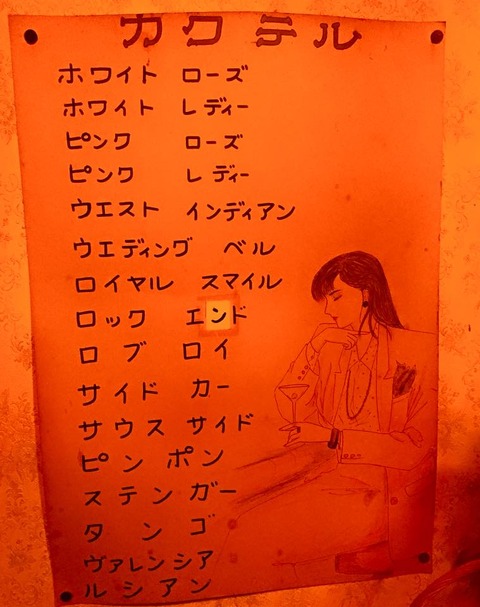 カクテル
ホワイト ローズ
ホワイト レディー
ピンク ローズ
ピンク レディー
ウエスト インディアン
ウエディング ベル
ロイヤル スマイル
ロック エンド
ロブ ロイ
サイド カー
サウス サイド
ピンポン
ステンガー
タンゴ
ヴァレンシア
ルシアン